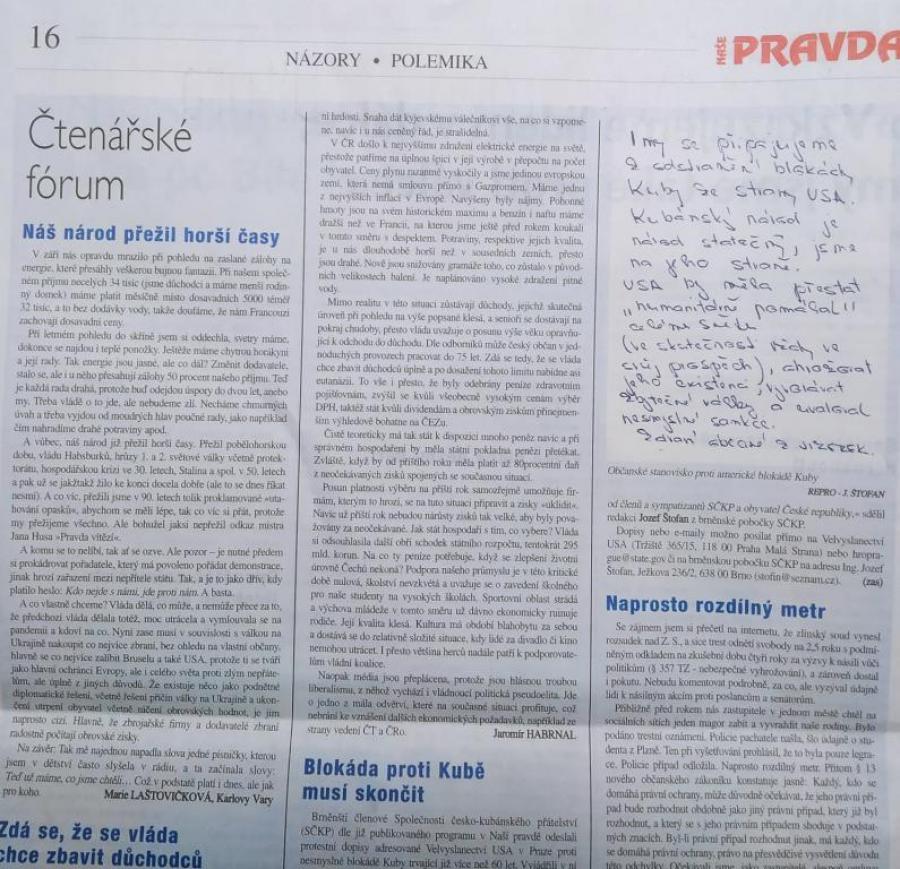 16
NÁZORY • POLEMIKA
NAŠE PRAVDA
Čtenářské
fórum
Náš národ přežil horší časy
V září nás opravdu mrazilo při pohledu na zaslané zálohy na
energie, které přesáhly veškerou bujnou fantazii. Při našem společ-
ném příjmu necelých 34 tisíc (jsme důchodci a máme menší rodin-
ný domek) máme platit měsíčně místo dosavadních 5000 téměř
32 tisíc, a to bez dodávky vody, takže doufáme, že nám Francouzi
zachovají dosavadní ceny.
Při letmém pohledu do skříně jsem si oddechla, svetry máme,
dokonce se najdou i teplé ponožky. Ještěže máme chytrou horákyni
a její rady. Tak energie jsou jasné, ale co dál? Změnit dodavatele,
stalo se, ale i u něho přesahují zálohy 50 procent našeho příjmu. Teď
je každá rada drahá, protože buď odejdou úspory do dvou let, anebo
my. Třeba vládě o to jde, ale nebudeme zlí. Nechme chmurných
úvah a třeba vyjdou od moudrých hlav poučné rady, jako například
čím nahradíme drahé potraviny apod.
A vůbec, náš národ již přežil horší časy. Přežil pobělohorskou
dobu, vládu Habsburků, hrůzy 1. a 2. světové války včetně protek-
torátu, hospodářskou krizi ve 30. letech, Stalina a spol. v 50. letech
a pak už se jakžtakž žilo ke konci docela dobře (ale to se dnes říkat
nesmí). A co víc, přežili jsme v 90. letech tolik proklamované «uta-
hování opasků», abychom se měli lépe, tak co víc si přát, protože
my přežijeme všechno. Ale bohužel jaksi nepřežil odkaz mistra
Jana Husa »Pravda vítězí«.
A komu se to nelíbí, tak ať se ozve. Ale pozor – je nutné předem
si prokádrovat pořadatele, který má povoleno pořádat demonstrace,
jinak hrozí zařazení mezi nepřítele státu. Tak, a je to jako dřív, kdy
platilo heslo: Kdo nejde s námi, jde proti nám. A basta.
A co vlastně chceme? Vláda dělá, co může, a nemůže přece za to,
že předchozí vláda dělala totéž, moc utrácela a vymlouvala se na
pandemii a kdoví na co. Nyní zase musí v souvislosti s válkou na
Ukrajině nakoupit co nejvíce zbraní, bez ohledu na vlastní občany,
hlavně se co nejvíce zalíbit Bruselu a také USA, protože ti se tváří
jako hlavní ochránci Evropy, ale i celého světa proti zlým nepřáte-
lům, ale úplně z jiných důvodů. Že existuje něco jako podnětné
diplomatické řešení, včetně řešení příčin války na Ukrajině a ukon-
čení utrpení obyvatel včetně ničení obrovských hodnot, je jim
naprosto cizí. Hlavně, že zbrojařské firmy a dodavatelé zbraní
radostně počítají obrovské zisky.
Na závěr: Tak mě najednou napadla slova jedné písničky, kterou
jsem v dětství často slyšela v rádiu, a ta začínala slovy:
Teď už máme, co jsme chtěli... Což v podstatě platí i dnes, ale jak
pro koho. Marie LAŠTOVIČKOVÁ, Karlovy Vary
Zdá se, že se vláda
chce zbavit důchodců
ní hrdosti. Snaha dát kyjevskému válečníkovi vše, na co si vzpome-
ne, navíc i u nás ceněný řád, je strašidelná.
V ČR došlo k nejvyššímu zdražení elektrické energie na světě,
přestože patříme na úplnou špici v její výrobě v přepočtu na počet
obyvatel. Ceny plynu razantně vyskočily a jsme jedinou evropskou
zemí, která nemá smlouvu přímo s Gazpromem. Máme jednu
z nejvyšších inflací v Evropě. Navýšeny byly nájmy. Pohonné
hmoty jsou na svém historickém maximu a benzin i naftu máme
dražší než ve Francii, na kterou jsme ještě před rokem koukali
v tomto směru s despektem. Potraviny, respektive jejich kvalita,
je u nás dlouhodobě horší než v sousedních zemích, přesto
jsou drahé. Nově jsou snižovány gramáže toho, co zůstalo v původ-
ních velikostech balení. Je naplánováno vysoké zdražení pitné
vody.
Mimo realitu v této situaci zůstávají důchody, jejichž skutečná
úroveň při pohledu na výše popsané klesá, a senioři se dostávají na
pokraj chudoby, přesto vláda uvažuje o posunu výše věku opravňu-
jící k odchodu do důchodu. Dle odborníků může český občan v jed-
noduchých provozech pracovat do 75 let. Zdá se tedy, že se vláda
chce zbavit důchodců úplně a po dosažení tohoto limitu nabídne asi
eutanázii. To vše i přesto, že byly odebrány peníze zdravotním
pojišťovnám, zvýšil se kvůli všeobecně vysokým cenám výběr
DPH, taktéž stát kvůli dividendám a obrovským ziskům přinejmen-
ším výhledově bohatne na ČEZu.
Čistě teoreticky má tak stát k dispozici mnoho peněz navíc a při
správném hospodaření by měla státní pokladna penězi přetékat.
Zvláště, když by od příštího roku měla platit až 80procentní daň
z neočekávaných zisků spojených se současnou situací.
Posun platnosti výběru na příští rok samozřejmě umožňuje fir-
mám, kterým to hrozí, se na tuto situaci připravit a zisky »uklidit«.
Navíc už příští rok nebudou nárůsty zisků tak velké, aby byly pova-
žovány za neočekávané. Jak stát hospodaří s tím, co vybere? Vláda
si odsouhlasila další obří schodek státního rozpočtu, tentokrát 295
mld. korun. Na co ty peníze potřebuje, když se zlepšení životní
úrovně Čechů nekoná? Podpora našeho průmyslu je v této kritické
době nulová, školství nevzkvétá a uvažuje se o zavedení školného
pro naše studenty na vysokých školách. Sportovní oblast strádá
a výchova mládeže v tomto směru už dávno ekonomicky ruinuje
rodiče. Její kvalita klesá. Kultura má období blahobytu za sebou
a dostává se do relativně složité situace, kdy lidé za divadlo či kino
nemohou utrácet. I přesto většina herců nadále patří k podporovate-
lům vládní koalice.
Naopak média jsou přeplácena, protože jsou hlásnou troubou
liberalismu, z něhož vychází i vládnoucí politická pseudoelita. Jde
o jedno z mála odvětví, které na současné situaci profituje, což
nebrání ke vznášení dalších ekonomických požadavků, například ze
strany vedení ČT a ČRo. Jaromír HABRNAL
Blokáda proti Kubě
musí skončit
Brněnští členové Společnosti česko-kubánského přátelství
(SČKP) dle již publikovaného programu v Naší pravdě odeslali
protestní dopisy adresované Velvyslanectví USA v Praze proti
nesmyslné blokádě Kuby trvající již více než 60 let. Vyjádřili v ní
I my se připojujeme
k odstranění blokády
Kuby ze strany USA.
Kubánský národ je
národ statečný, jsme
na jeho straně.
USA by měla přestat
"humanitárně pomáhat"
celému světu
(ve skutečnosti vždy ve
svůj prospěch), ohrožovat
jeho existenci, vyvolávat
zbytečné války a uvalovat
nesmyslné sankce.
Zdraví občané z Vizerek.
Občanské stanovisko proti americké blokádě Kuby
REPRO - J. ŠTOFAN
od členů a sympatizantů SČKP a obyvatel České republiky,« sdělil
redakci Jozef Štofan z brněnské pobočky SČKP.
Dopisy nebo e-maily možno posílat přímo na Velvyslanectví
USA (Tržiště 365/15, 118 00 Praha Malá Strana) nebo hropra-
gue@state.gov či na brněnskou pobočku SČKP na adresu Ing. Jozef
Štofan, Ježkova 236/2, 638 00 Brno (stofin@seznam.cz). (zas)
Naprosto rozdílný metr
Se zájmem jsem si přečetl na internetu, že zlínský soud vynesl
rozsudek nad Z. S., a sice trest odnětí svobody na 2,5 roku s podmí-
něným odkladem na zkušební dobu čtyři roky za výzvy k násilí vůči
politikům (§ 357 TZ - nebezpečné vyhrožování), a zároveň dostal
i pokutu. Nebudu komentovat podrobně, za co, ale vyzýval údajně
lidi k násilným akcím proti poslancům a senátorům.
Přibližně před rokem nás zastupitele v jednom městě chtěl na
sociálních sítích jeden magor zabít a vyvraždit naše rodiny. Bylo
podáno trestní oznámení. Policie pachatele našla, šlo údajně o stu-
denta z Plzně. Ten při vyšetřování prohlásil, že to byla pouze legra-
ce. Policie případ odložila. Naprosto rozdílný metr. Přitom § 13
nového občanského zákoníku konstatuje jasně: Každý, kdo se
domáhá právní ochrany, může důvodně očekávat, že jeho právní pří-
pad bude rozhodnut obdobně jako jiný právní případ, který již byl
rozhodnut, a který se s jeho právním případem shoduje v podstat-
ných znacích. Byl-li právní případ rozhodnut jinak, má každý, kdo
se domáhá právní ochrany, právo na přesvědčivé vysvětlení důvodu
této odchylky. Očekávali jsme, jako zastupitelé,